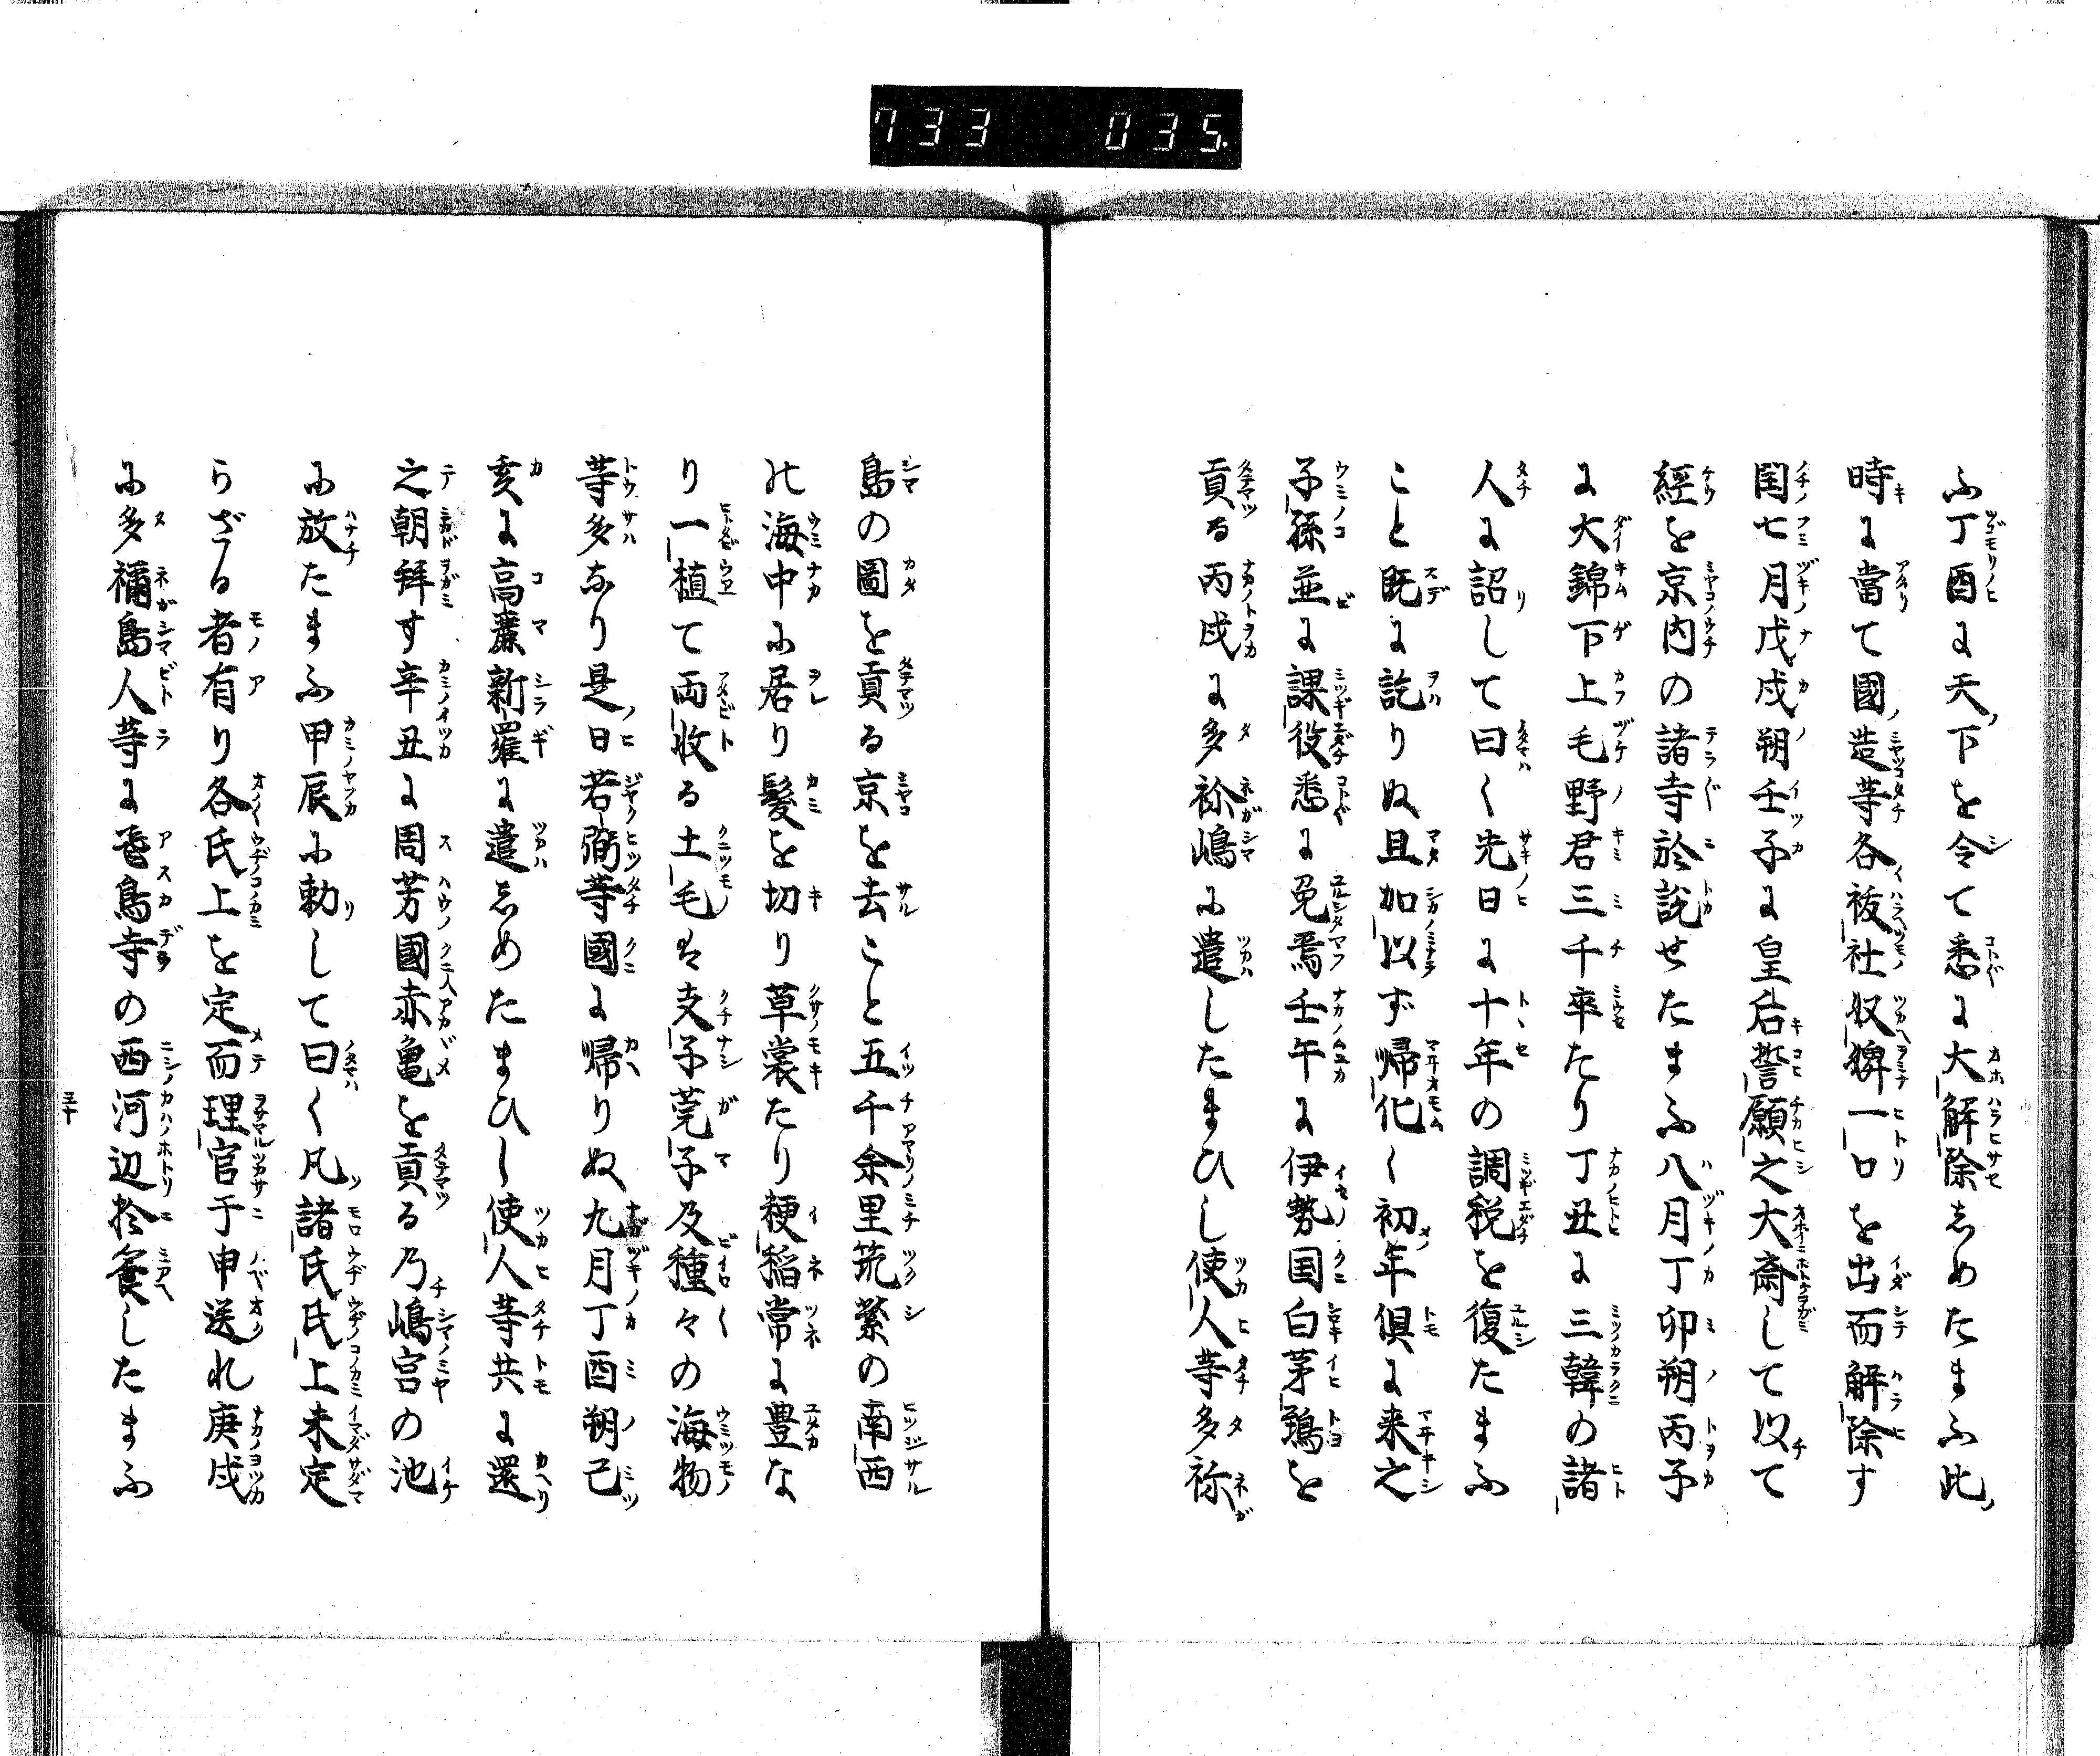 733 035.
ふ丁酉に天下を令て悉に大解除志めたまふ此
時に當て國造等各祓社奴婢一口を出而解除す
閏七月戊戌朔壬子に皇后誓願之大斎して以て
經を京内の諸寺於説せたまふ八月丁卯朔丙子
に大錦下上毛野君三千卒たり丁丑に三韓の諸
人に詔して曰く先日に十年の調税を復たまふ
こと既に訖りぬ且加以ず帰化く初年倶に来之
子孫並に課役悉に免焉壬午に伊勢国白茅鵄を
貢る丙戌に多祢嶋に遣したまひし使人等多祢
島の圖を貢る京を去こと五千余里筑紫の南西
の海中に居り髮を切り草裳たり粳稲常に豊な
り一植て両收る土毛は支子莞子及種々の海物
等多なり是日若弼等國に帰りぬ九月丁酉朔己
亥に高麗新羅に遣志めたまひし使人等共に還
之朝拜す辛丑に周芳國赤亀を貢る乃嶋宮の池
に放たまふ甲辰に勅して曰く凡諸氏氏上未定
らざる者有り各氏上を定而理官于申送れ庚戌
に多禰島人等に飛鳥寺の西河辺於饗したまふ
三十